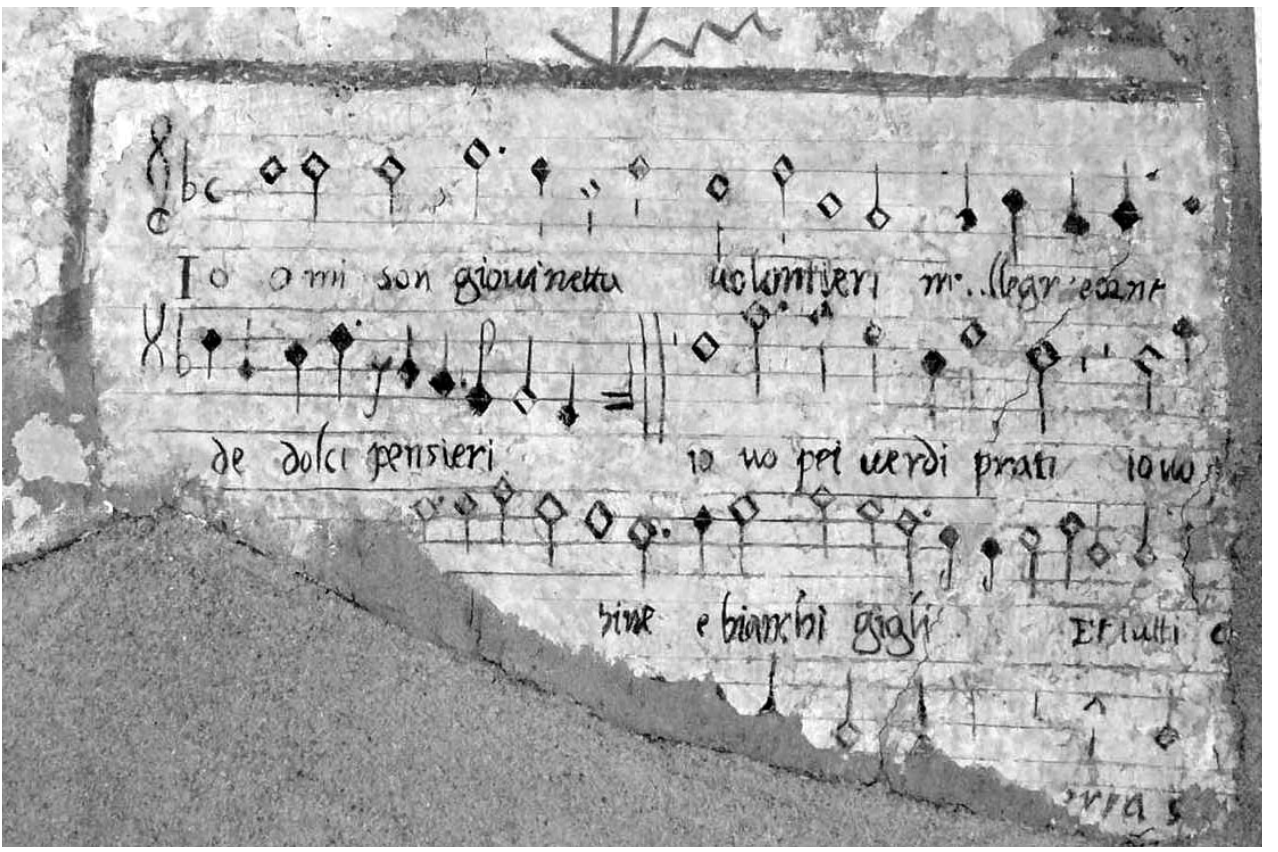 Io o mi son giovinetta volontieri m'..llegr e cant
de dolci pensieri io vo pei verdi prati io vo
e bianchi gigli Et tutti